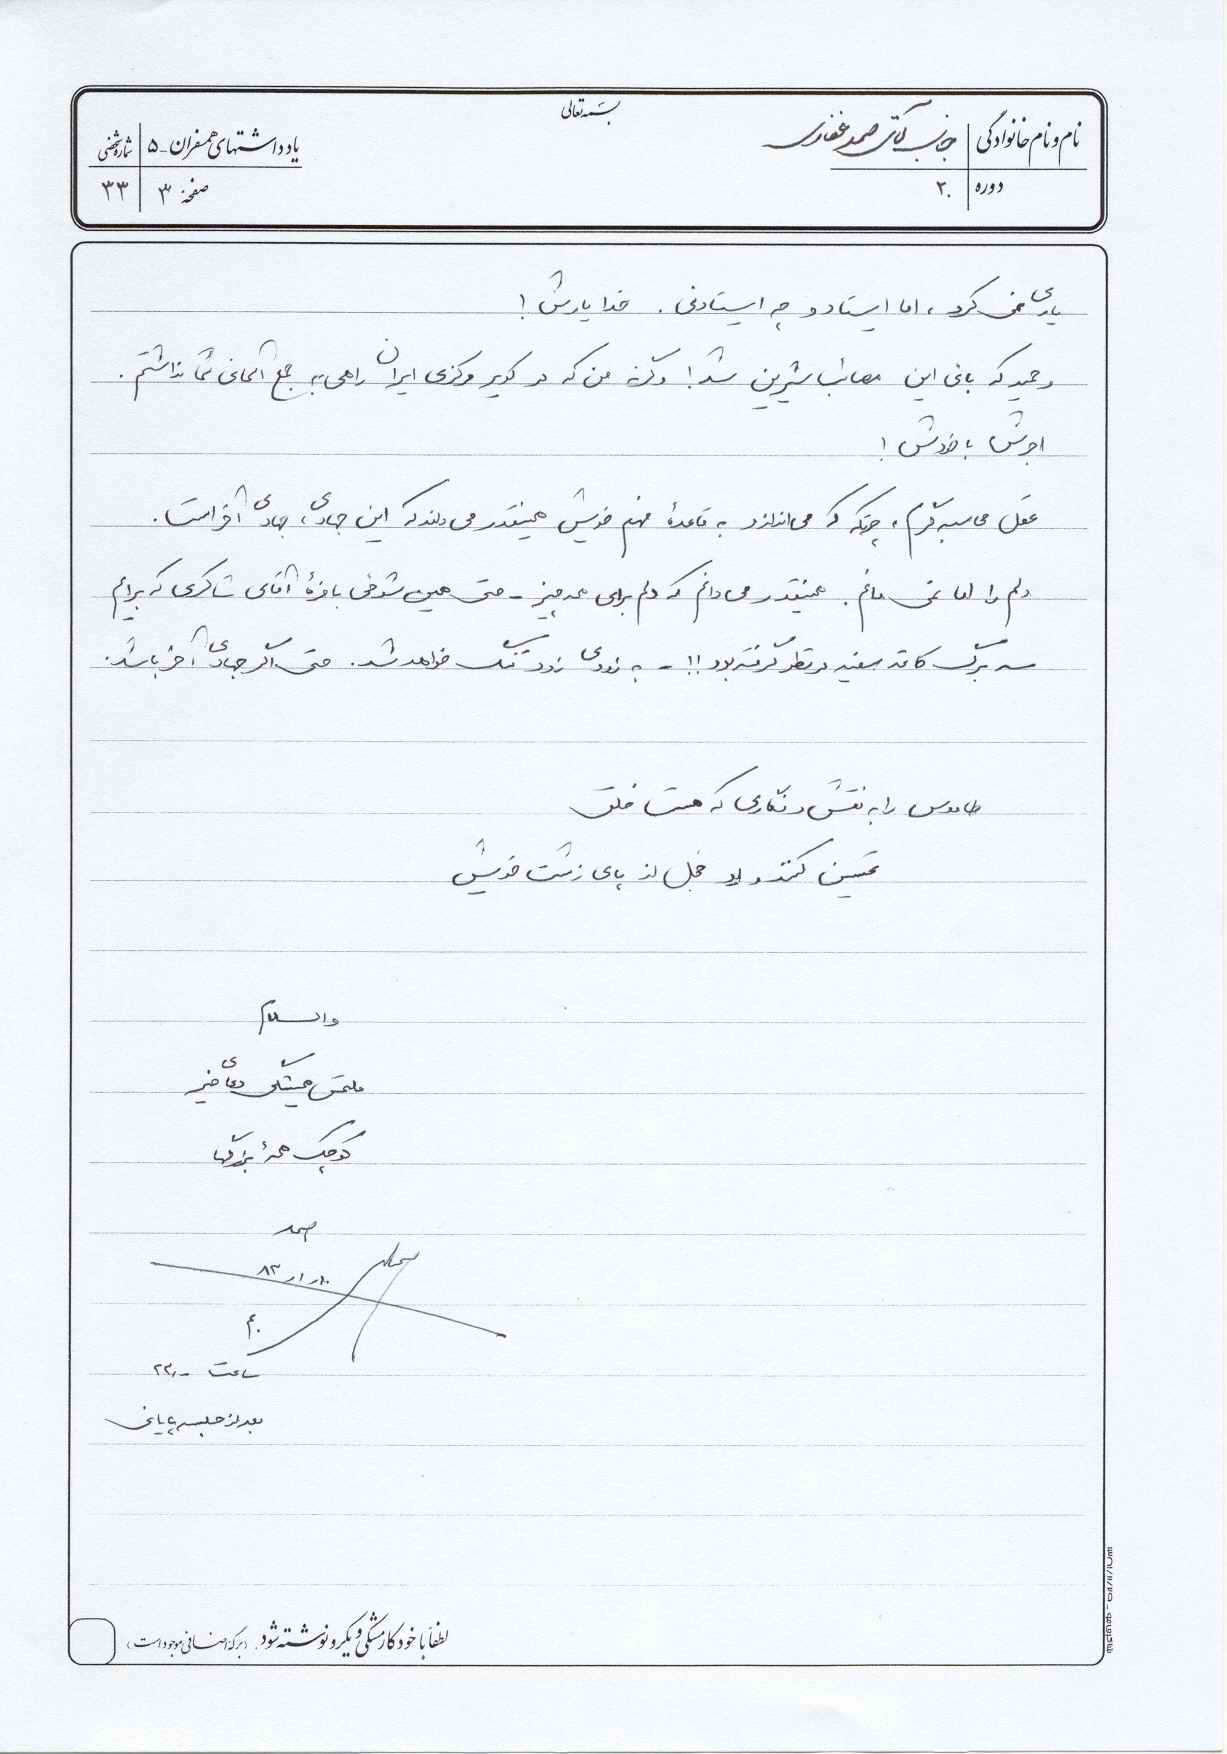 بسمه تعالی
نام و نام خانوادگی جناب آقای صمد غفاری
دوره ۲۰
یادداشتهای همسفران - ۵ شماره شخصی
صفحهٔ ۳ ۳۳
یاری نمی کرد، اما ایستاد و چه ایستادنی. خدا یارش!
وحید که بانی این مصائب شیرین شد! وگرنه من که در کویر مرکزی ایران راهی به جمع آلمانی شما نداشتم.
اجرش با خودش!
عقل محاسبه گرم، چرتکه که می اندازد به قاعدهٔ فهم خویش همینقدر می داند که این جهادی، جهادی آخر است.
دلم را اما نمی دانم. همینقدر می دانم که دلم برای همه چیز - حتی همین شوخی بامزهٔ آقای شاکری که برایم
سه برگ کاغذ سفید در نظر گرفته بود!! - به زودی زود تنگ خواهد شد. حتی اگر جهادی آخر باشد.
طاووس را به نقش و نگاری که هست خلق
تحسین کنند و او خجل از پای زشت خویش
والسلام
ملتمس همیشگی دعای خیر
کوچک همهٔ بزرگها
صمد
۸۳/۱/۱۰
ساعت ۲۳:۰۰
بعد از جلسه پایانی
لطفاً با خودکار مشکی و یکرو نوشته شود. (برگه اضافی موجود است)